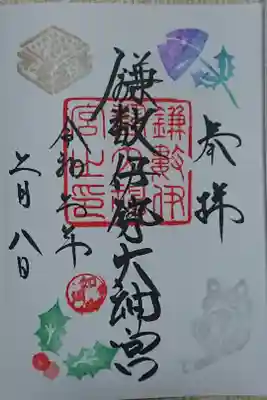 奉拝
鎌数伊勢大神宮
鎌數伊
勢大神
宮之印
令和六年
二月八日